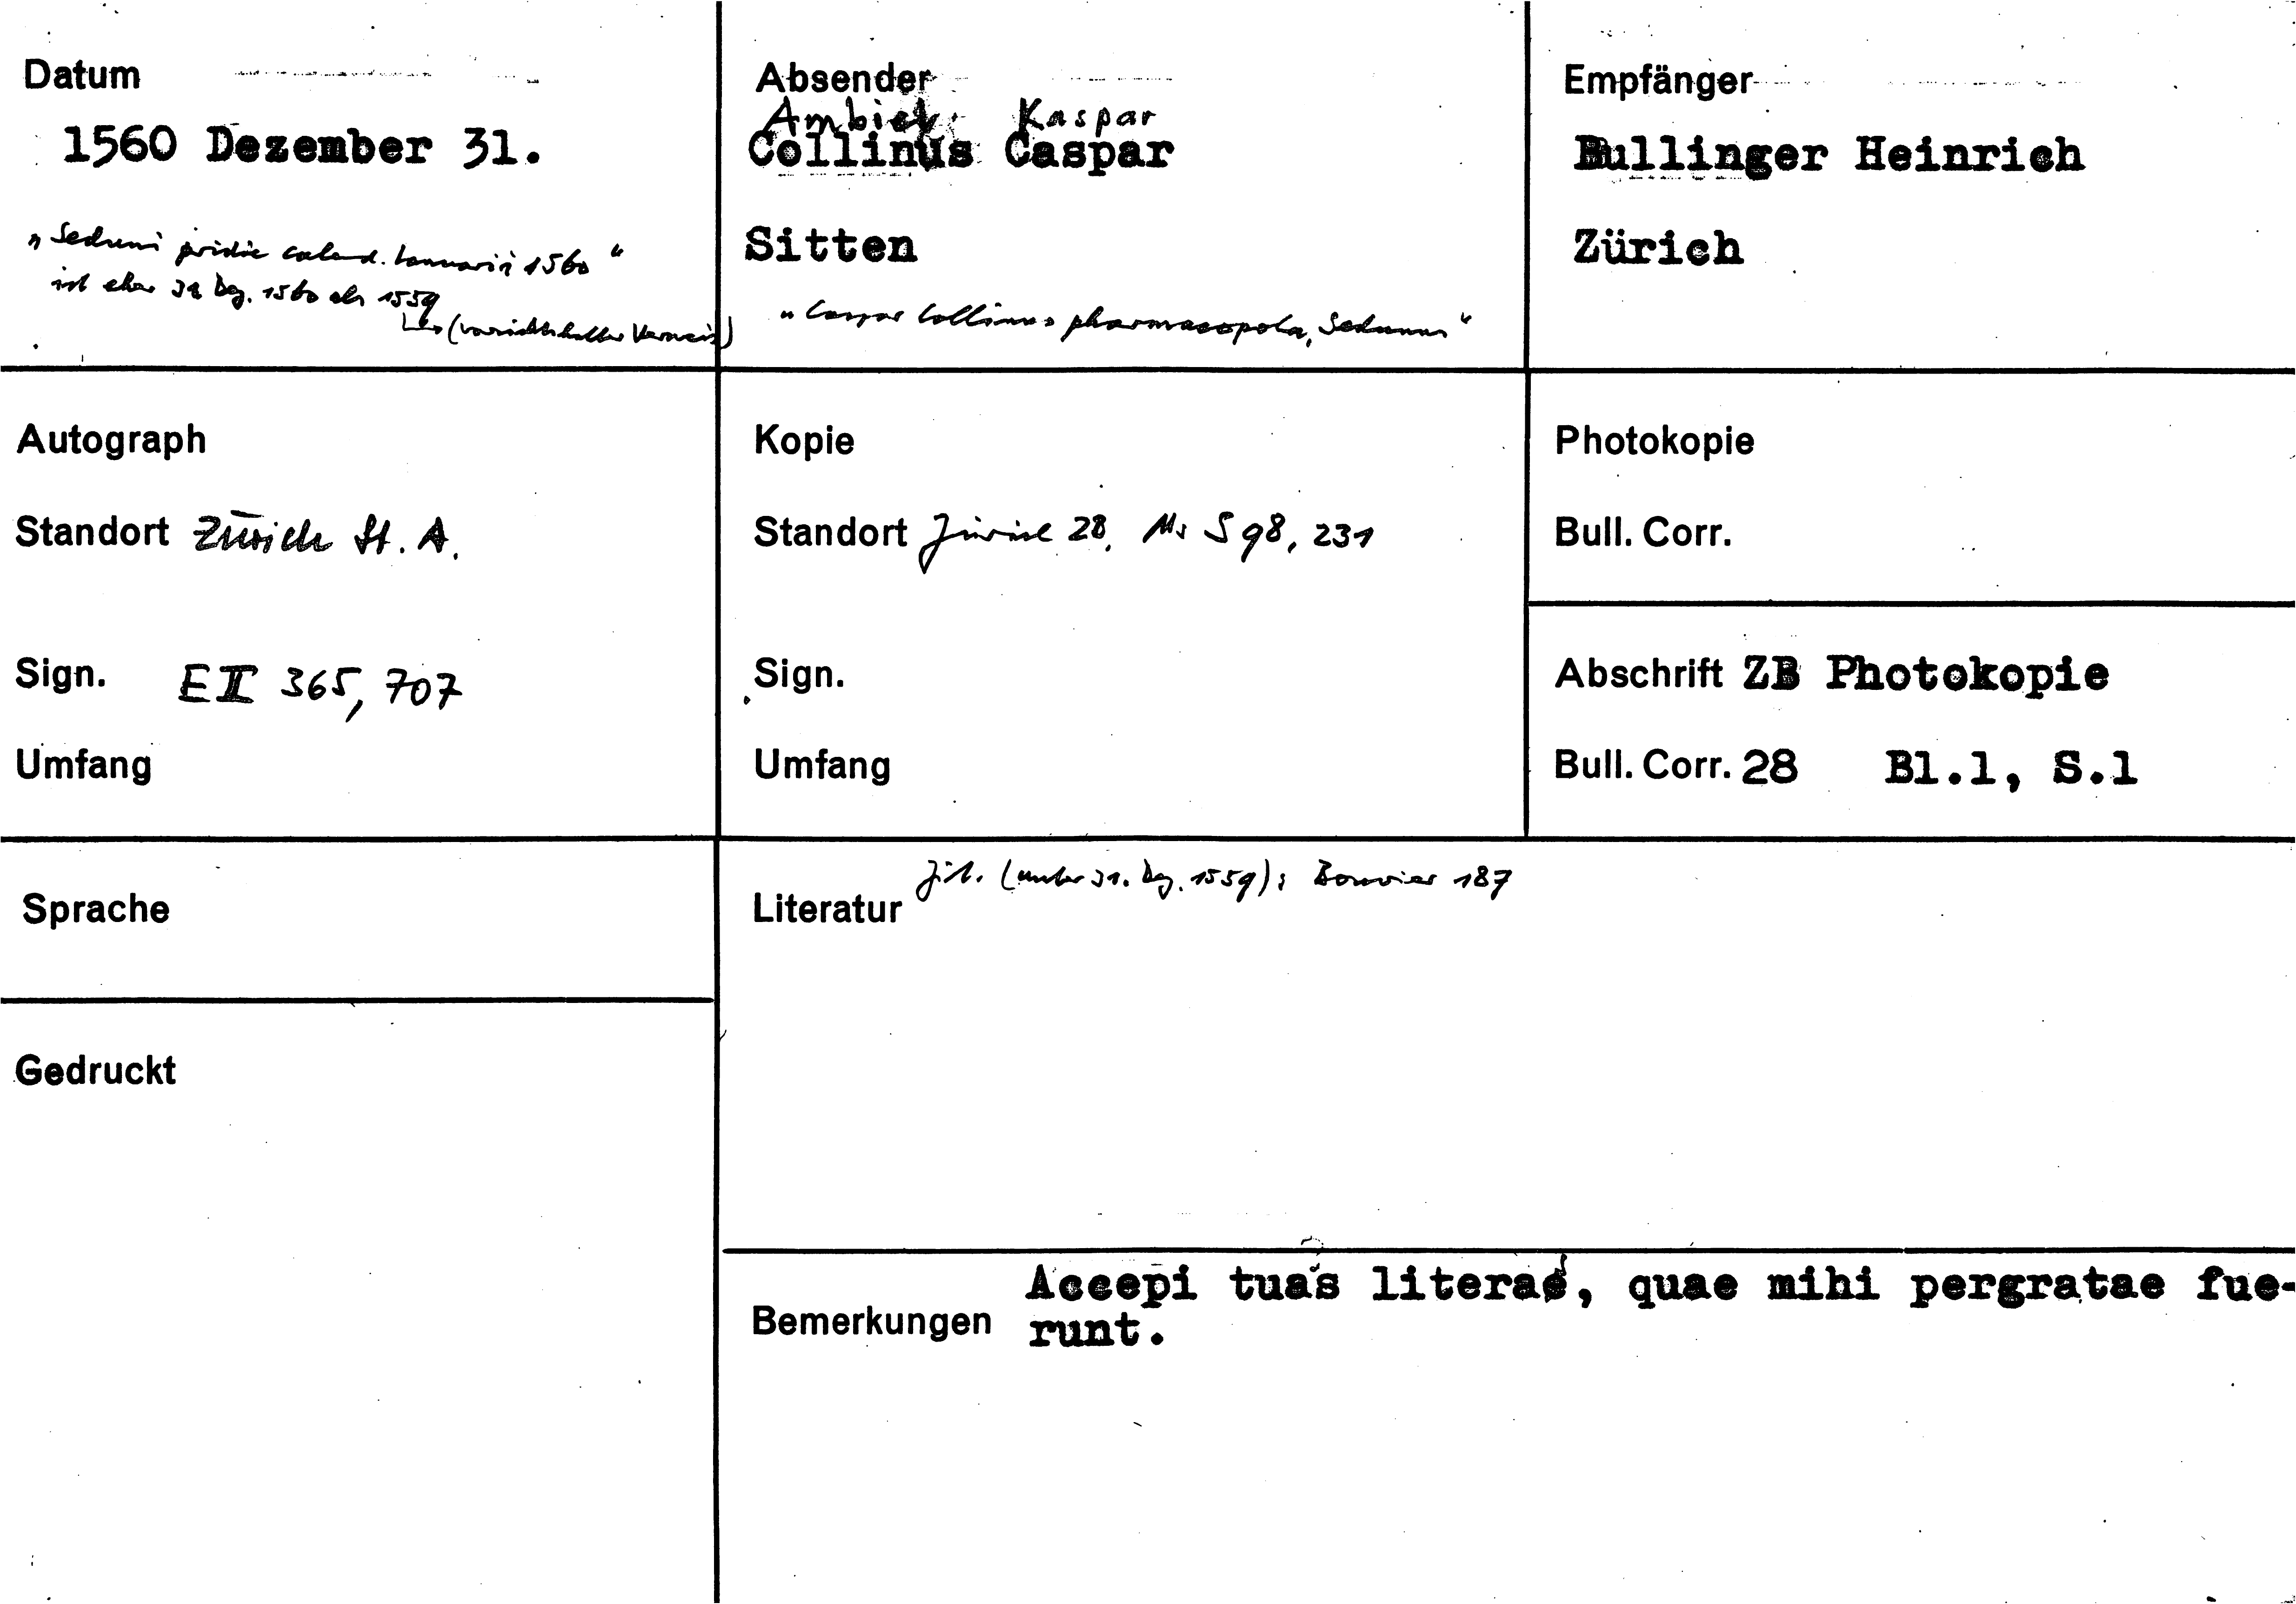 Datum
1560 Dezember 31.
"Seduni pridie caland. Ianuarii 1560"
ist eher 31 Dez. 1560 als 1559
(vorsichtshalber Verweis)
Absender
Ambiel Kaspar
Collinus Caspar
Sitten
"Caspar Collinus pharmacopola, Sedunus"
Empfänger
Bullinger Heinrich
Zürich
Autograph
Standort Zürich St. A.
Sign. E II 365, 707
Umfang
Kopie
Standort Zürich ZB, Ms S 98, 231
Sign.
Umfang
Photokopie
Bull. Corr.
Abschrift ZB Photokopie
Bull. Corr. 28 Bl.1, S.1
Sprache
Gedruckt
Zit. (unter 31. Dez. 1559): Bouvier 187
Literatur
Accepi tuas literas, quae mihi pergratae fue-
Bemerkungen runt.